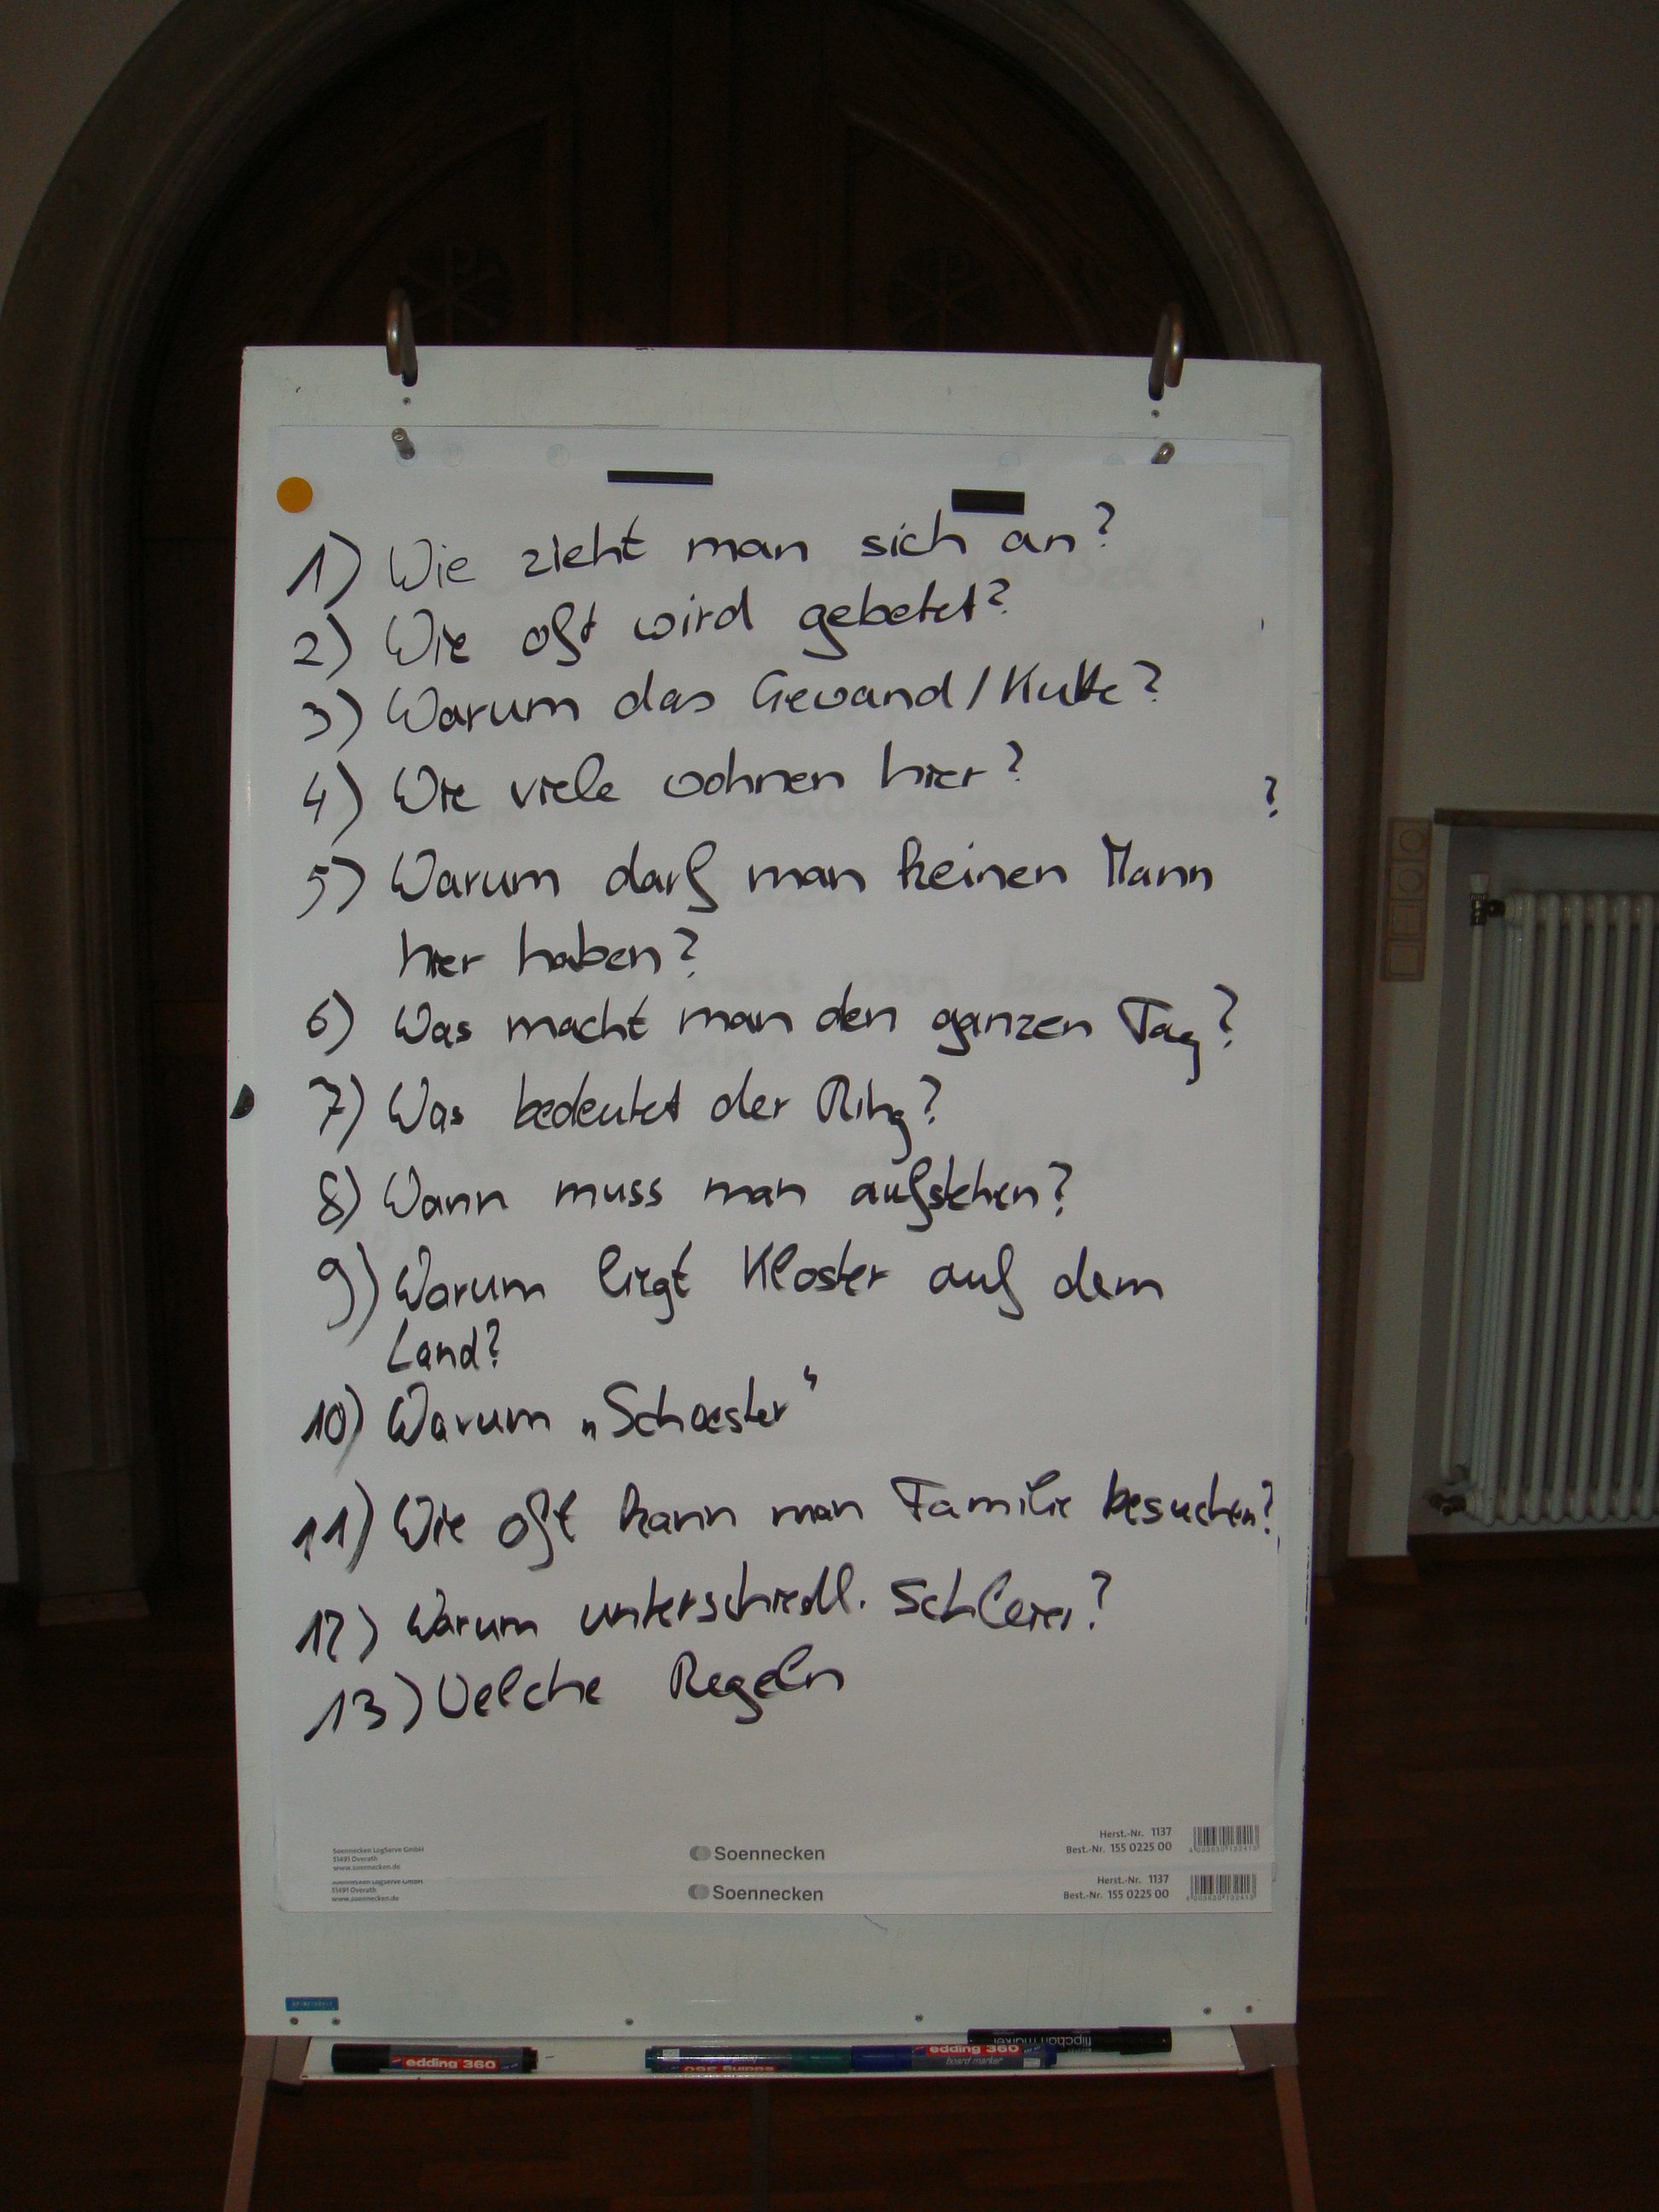 1) Wie zieht man sich an?
2) Wie oft wird gebetet?
3) Warum das Gewand/Kutte?
4) Wie viele wohnen hier?
?
5) Warum darf man keinen Mann
hier haben?
6) Was macht man den ganzen Tag?
7) Was bedeutet der Ring?
8) Wann muss man aufstehen?
9) Warum liegt Kloster auf dem
Land?
10) Warum „Schwester"
11) Wie oft kann man Familie besuchen?
12) Warum unterschiedl. Schleier?
13) Welche Regeln
Soennecken LogServe GmbH
51491 Overath
www.soennecken.de
Soennecken
Herst.-Nr. 1137
Best.-Nr. 155 0225 00
Soennecken LogServe GmbH
51491 Overath
www.soennecken.de
Soennecken
Herst.-Nr. 1137
Best.-Nr. 155 0225 00
edding 360
edding 360
edding 360
board marker
flipchart marker